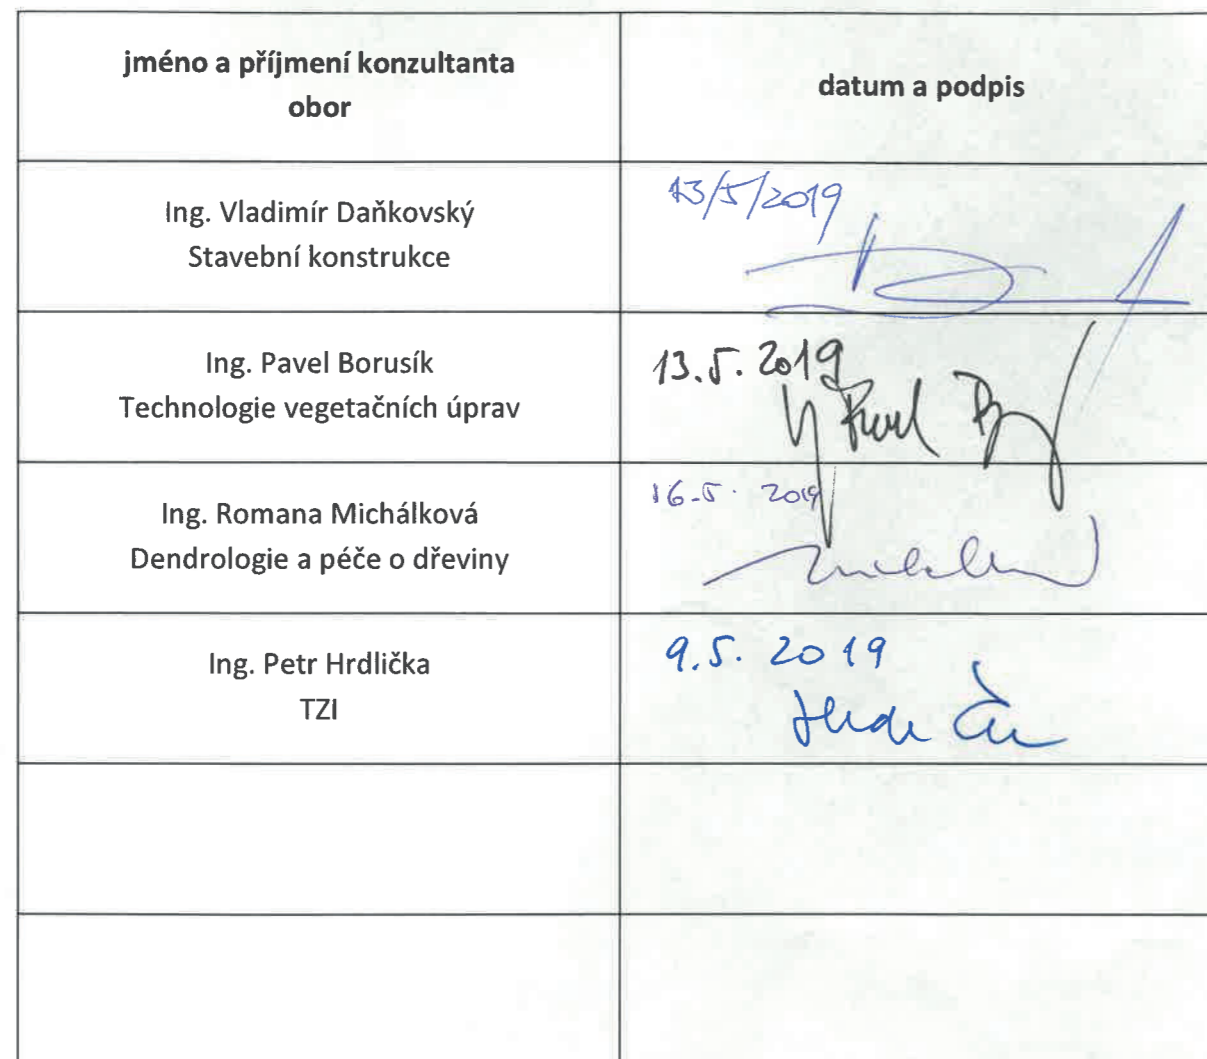 jméno a příjmení konzultanta
obor
datum a podpis
Ing. Vladimír Daňkovský
Stavební konstrukce
13/5/2019
Ing. Pavel Borusík
Technologie vegetačních úprav
13.5. 2019
Ing. Romana Michálková
Dendrologie a péče o dřeviny
16.5. 2019
Ing. Petr Hrdlička
TZI
9.5. 2019